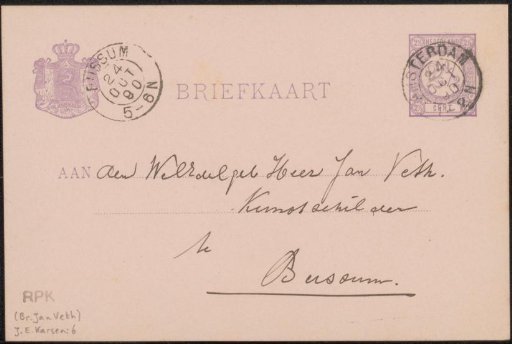 BUSSUM
24
OCT
90
5-6N
BRIEFKAART
AMSTERDAM
24
OCT
AAN den Weledelgeb Heer Jan Veth.
Kunstschilder
te
Bussum.
RPK
(Br. Jan Veth)
J.E. Karsen: 6